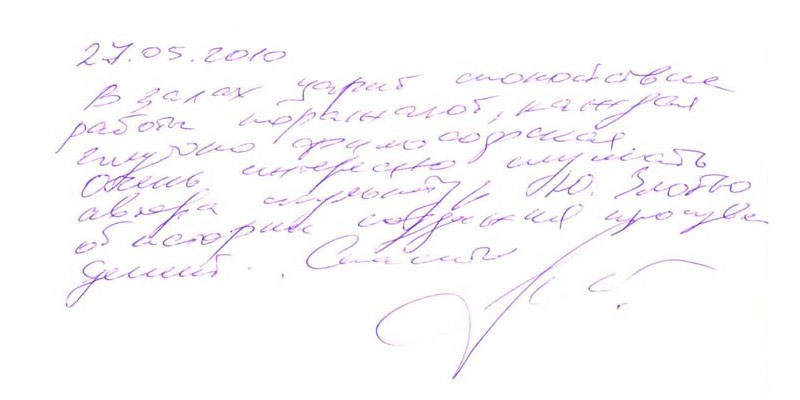 27.05.2010
В залах царит спокойствие
работы поражают, каждая
глубоко философская
Очень интересно слушать
автора скульптур Ю. Злотю
об истории создания произве
дений. Спасибо